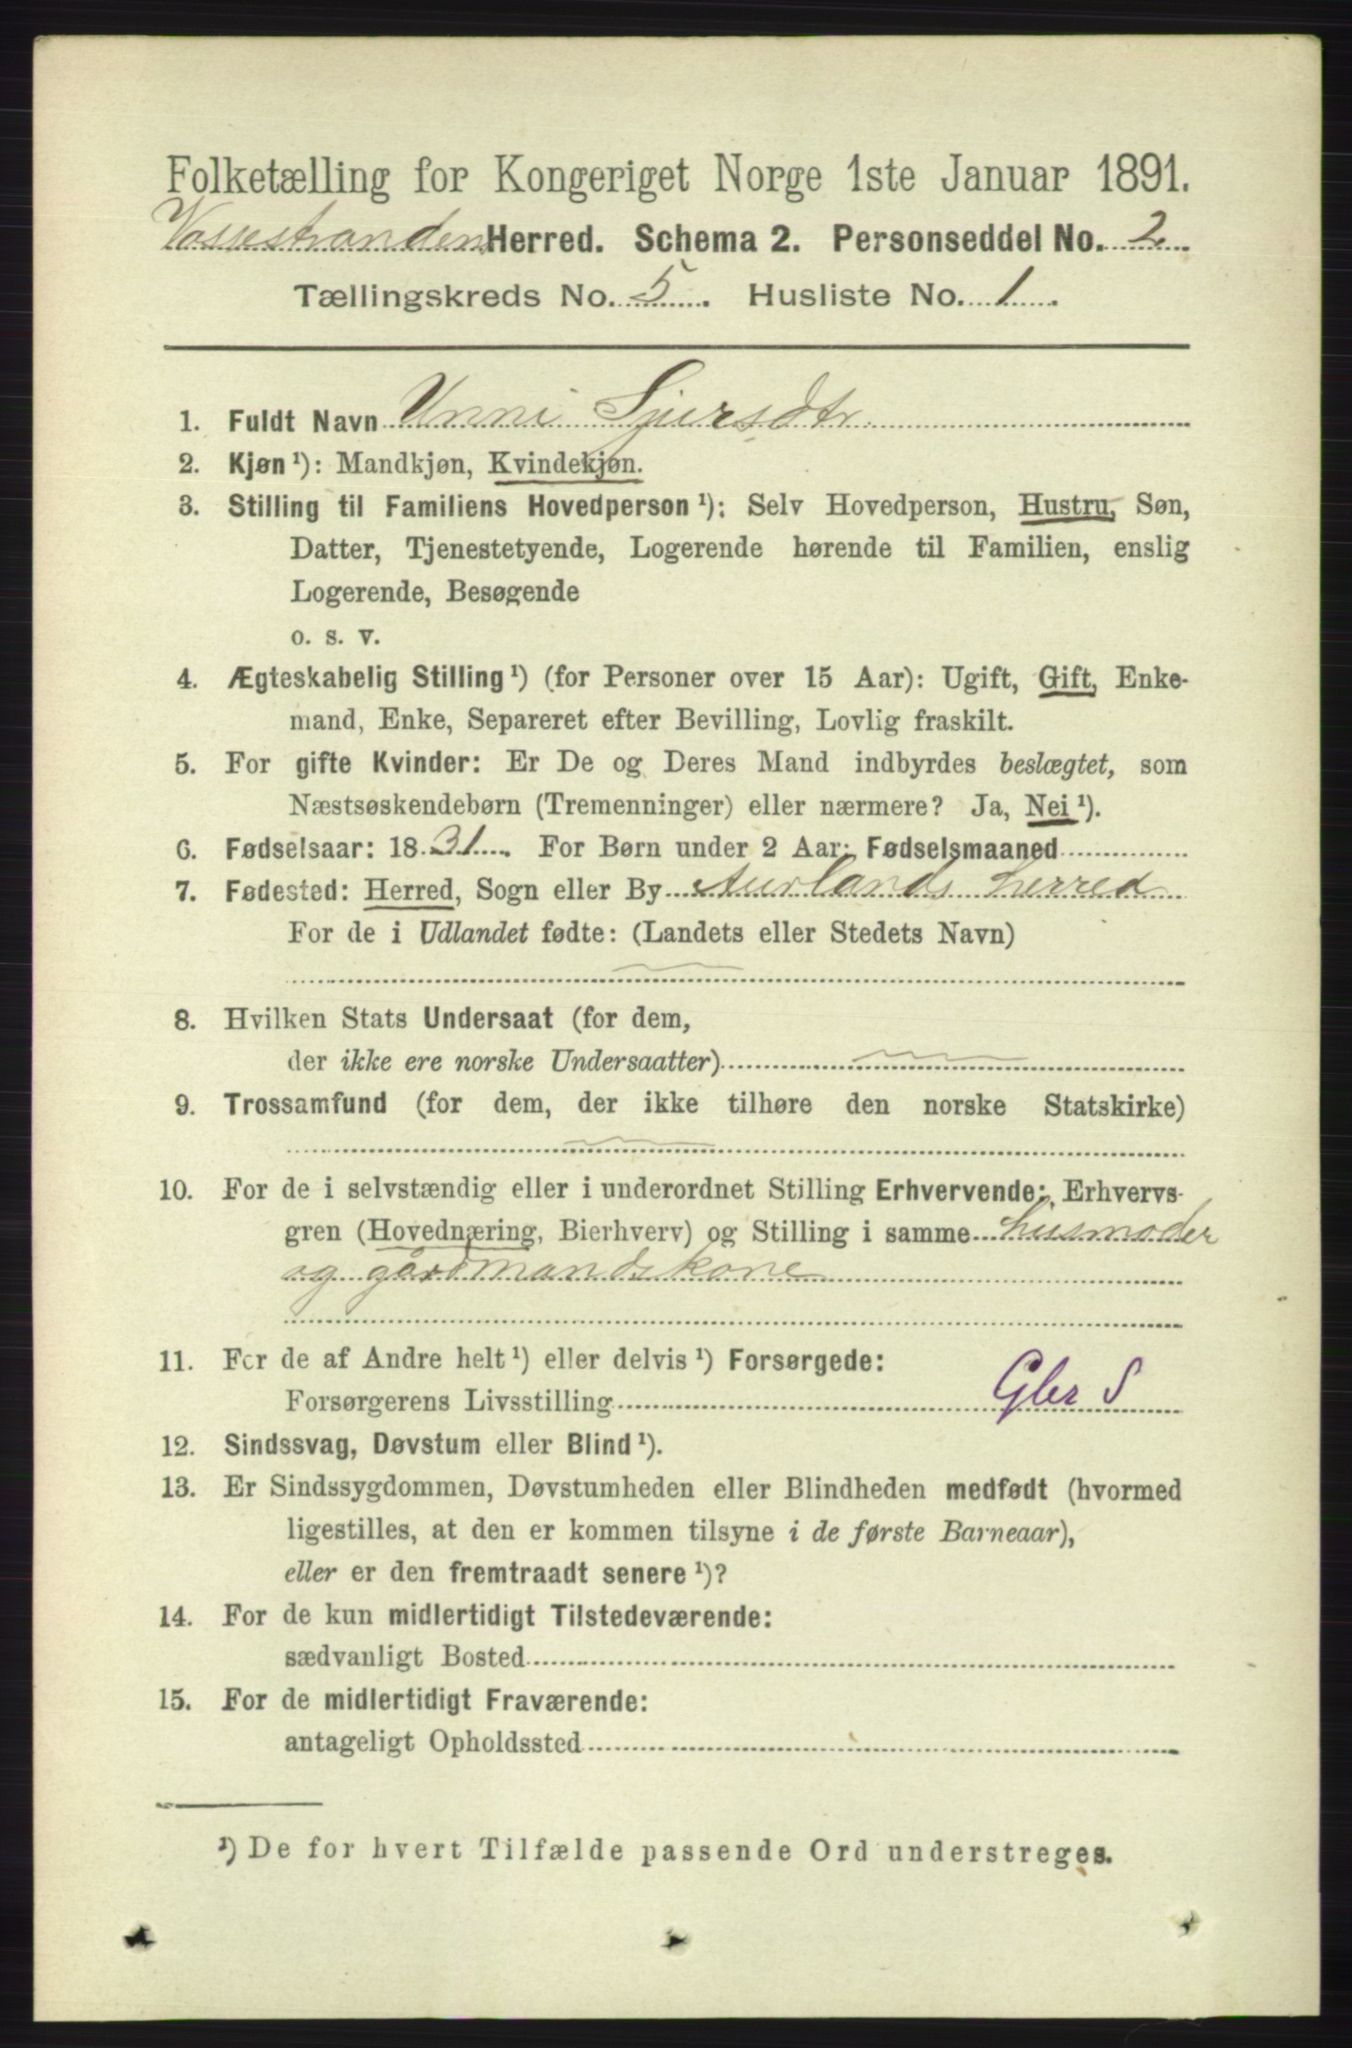 Folketælling for Kongeriget Norge 1ste Januar 1891.
Vossestranden Herred. Schema 2. Personseddel No. 2.
Tællingskreds No. 5. Husliste No. 1.
1. Fuldt Navn Unni Sjursdtr.
2. Kjøn ¹): Mandkjøn, Kvindekjøn.
3. Stilling til Familiens Hovedperson ¹): Selv Hovedperson, Hustru, Søn,
Datter, Tjenestetyende, Logerende hørende til Familien, enslig
Logerende, Besøgende
o. s. v.
4. Ægteskabelig Stilling ¹) (for Personer over 15 Aar): Ugift, Gift, Enke-
mand, Enke, Separeret efter Bevilling, Lovlig fraskilt.
5. For gifte Kvinder: Er De og Deres Mand indbyrdes beslægtet, som
Næstsøskendebørn (Tremenninger) eller nærmere? Ja, Nei ¹).
6. Fødselsaar: 1831. For Børn under 2 Aar: Fødselsmaaned
7. Fødested: Herred, Sogn eller By Aurlands herred
For de i Udlandet fødte: (Landets eller Stedets Navn)
8. Hvilken Stats Undersaat (for dem,
der ikke ere norske Undersaatter)
9. Trossamfund (for dem, der ikke tilhøre den norske Statskirke)
10. For de i selvstændig eller i underordnet Stilling Erhvervende: Erhvervs-
gren (Hovednæring, Bierhverv) og Stilling i samme husmoder
og gårdmandskone
11. For de af Andre helt ¹) eller delvis ¹) Forsørgede:
Forsørgerens Livsstilling Gbr S
12. Sindssvag, Døvstum eller Blind ¹).
13. Er Sindssygdommen, Døvstumheden eller Blindheden medfødt (hvormed
ligestilles, at den er kommen tilsyne i de første Barneaar),
eller er den fremtraadt senere ¹)?
14. For de kun midlertidigt Tilstedeværende:
sædvanligt Bosted
15. For de midlertidigt Fraværende:
antageligt Opholdssted
¹) De for hvert Tilfælde passende Ord understreges.